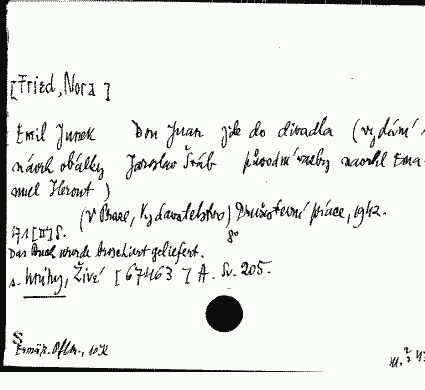 [Fried, Nora]
Emil Junek Don Juan jde do divadla (vydání
návrh obálky Jaroslav Šváb původní vazby navrhl Ema-
nuel Heront)
(V Praze, Vydavatelstvo) Družstevní práce, 1942.
171 [II] S. 8°
Das Buch wurde broschiert geliefert.
s. knihy, Živé [67463] A. Sv. 205.
S